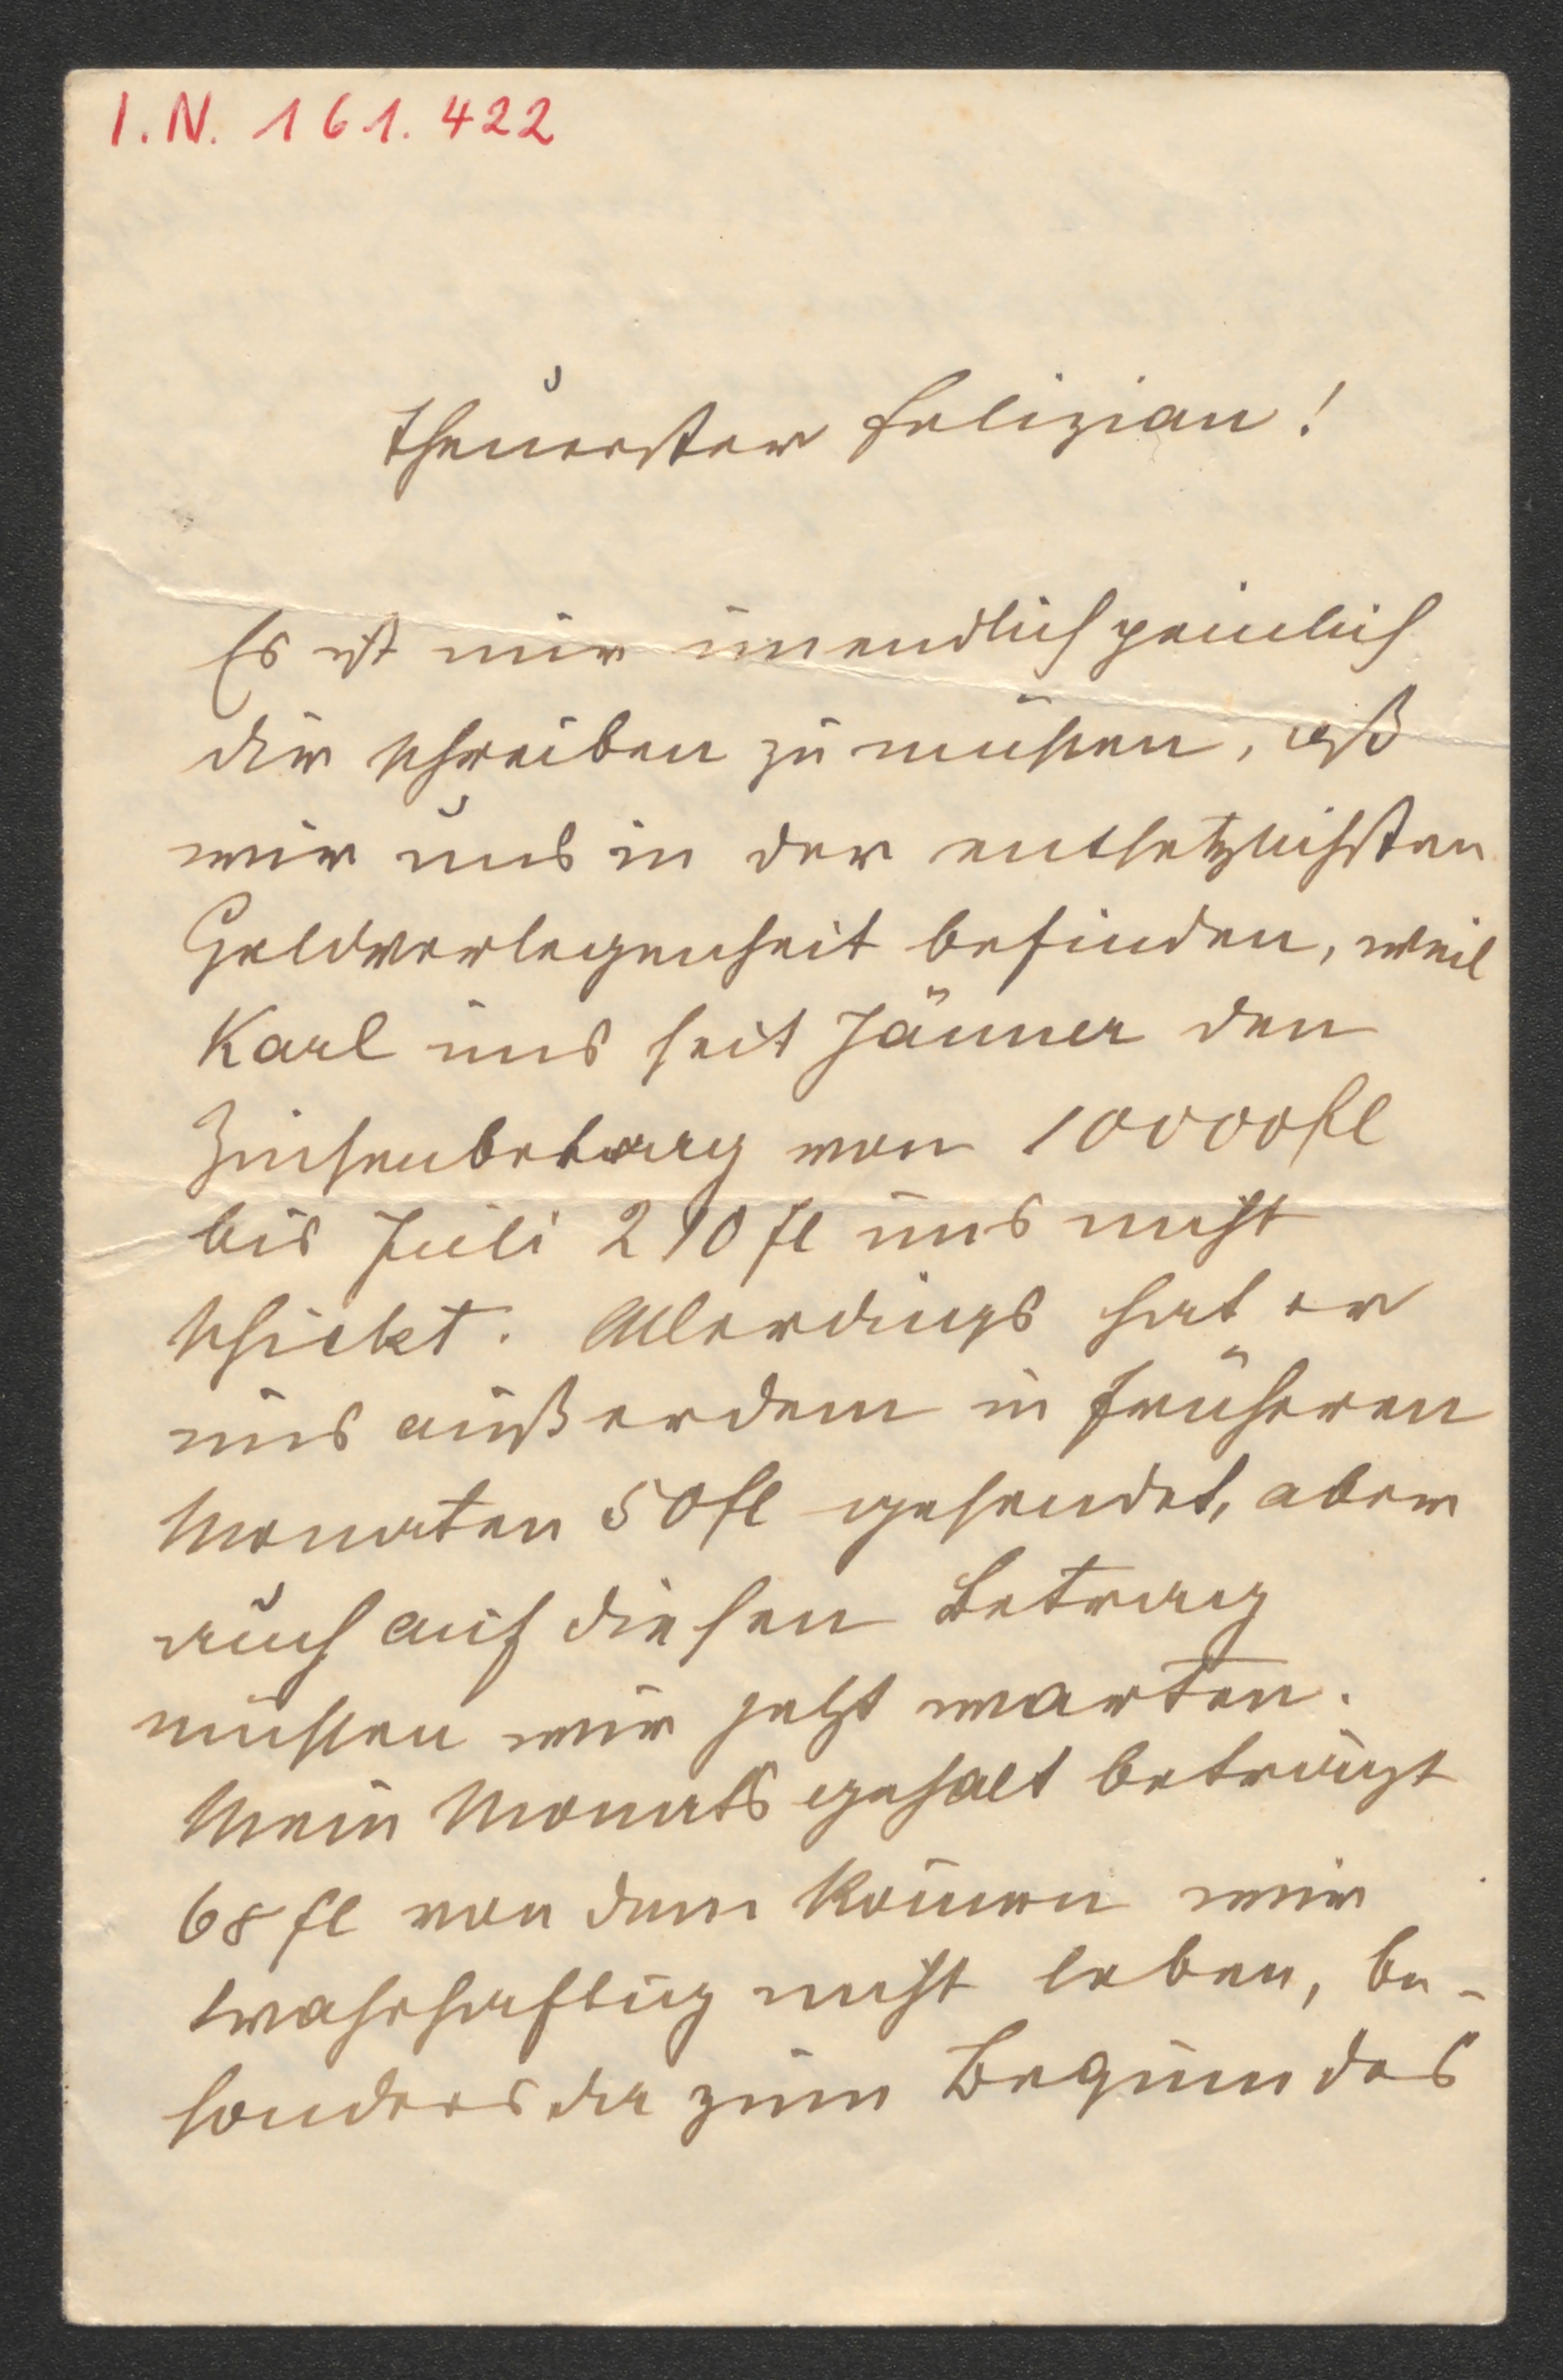 I.N. 161.422
Theuerster Felizian!
Es ist mir unendlich peinlich
dir schreiben zu müssen, daß
wir uns in der entsetzlichsten
Geldverlegenheit befinden, weil
Karl uns seit Jänner den
Zinsenbetrag von 10000 fl
bis Juli 210 fl uns nicht
schickt. Allerdings hat er
uns außerdem in früheren
Monaten 50 fl gesendet, aber
auch auf diesen Betrag
müssen wir jetzt warten.
Mein Monatsgehalt beträgt
68 fl von dem können wir
wahrhaftig nicht leben, be-
sonders da zum Beginn des